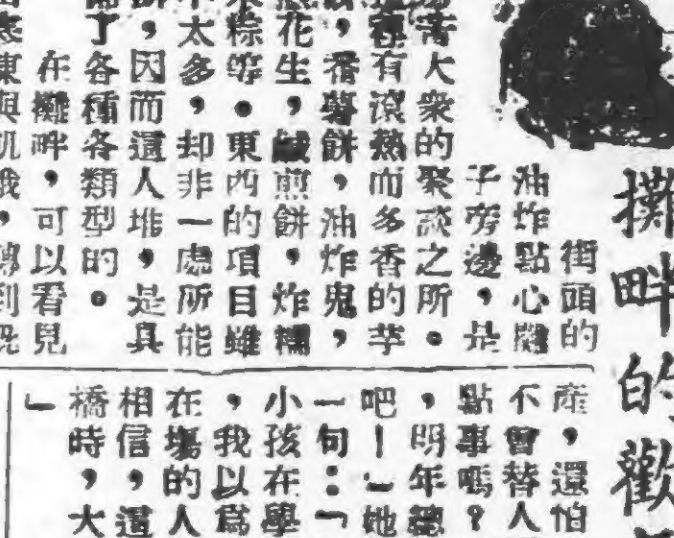 攤畔的歡
街頭的
油炸點心攤
子旁邊，是
苦大衆的聚談之所。
有滾熱而多香的芋
，番薯餅，油炸鬼，
花生，鹹煎餅，炸糯
粽等。東西的項目雖
太多，却非一處所能
，因而這人堆，是具
了各種各類型的。
在攤畔，可以看見
東與飢餓，
產，還怕
不曾替人
點事嗎？
，明年總
吧！」她
一句：「
小孩在學
，我以爲
在塲的人
相信，這
橋時，大
」